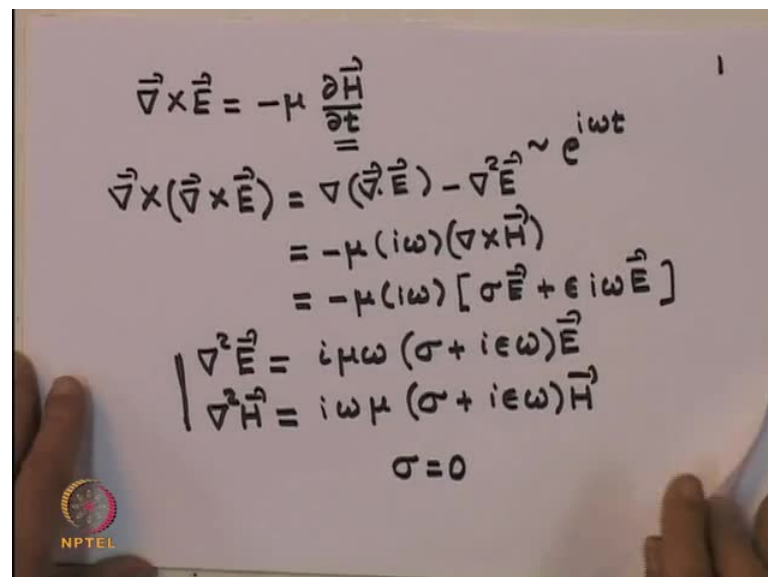 1
∇⃗ × E⃗ = -μ ∂H⃗/∂t
∇⃗ × (∇⃗ × E⃗) = ∇(∇⃗.E⃗) - ∇²E⃗ ~ e^{iωt}
= -μ(iω)(∇ × H⃗)
= -μ(iω) [σE⃗ + ϵ iωE⃗]
∇²E⃗ = iμω (σ + iϵω)E⃗
∇²H⃗ = iωμ (σ + iϵω)H⃗
σ = 0
NPTEL